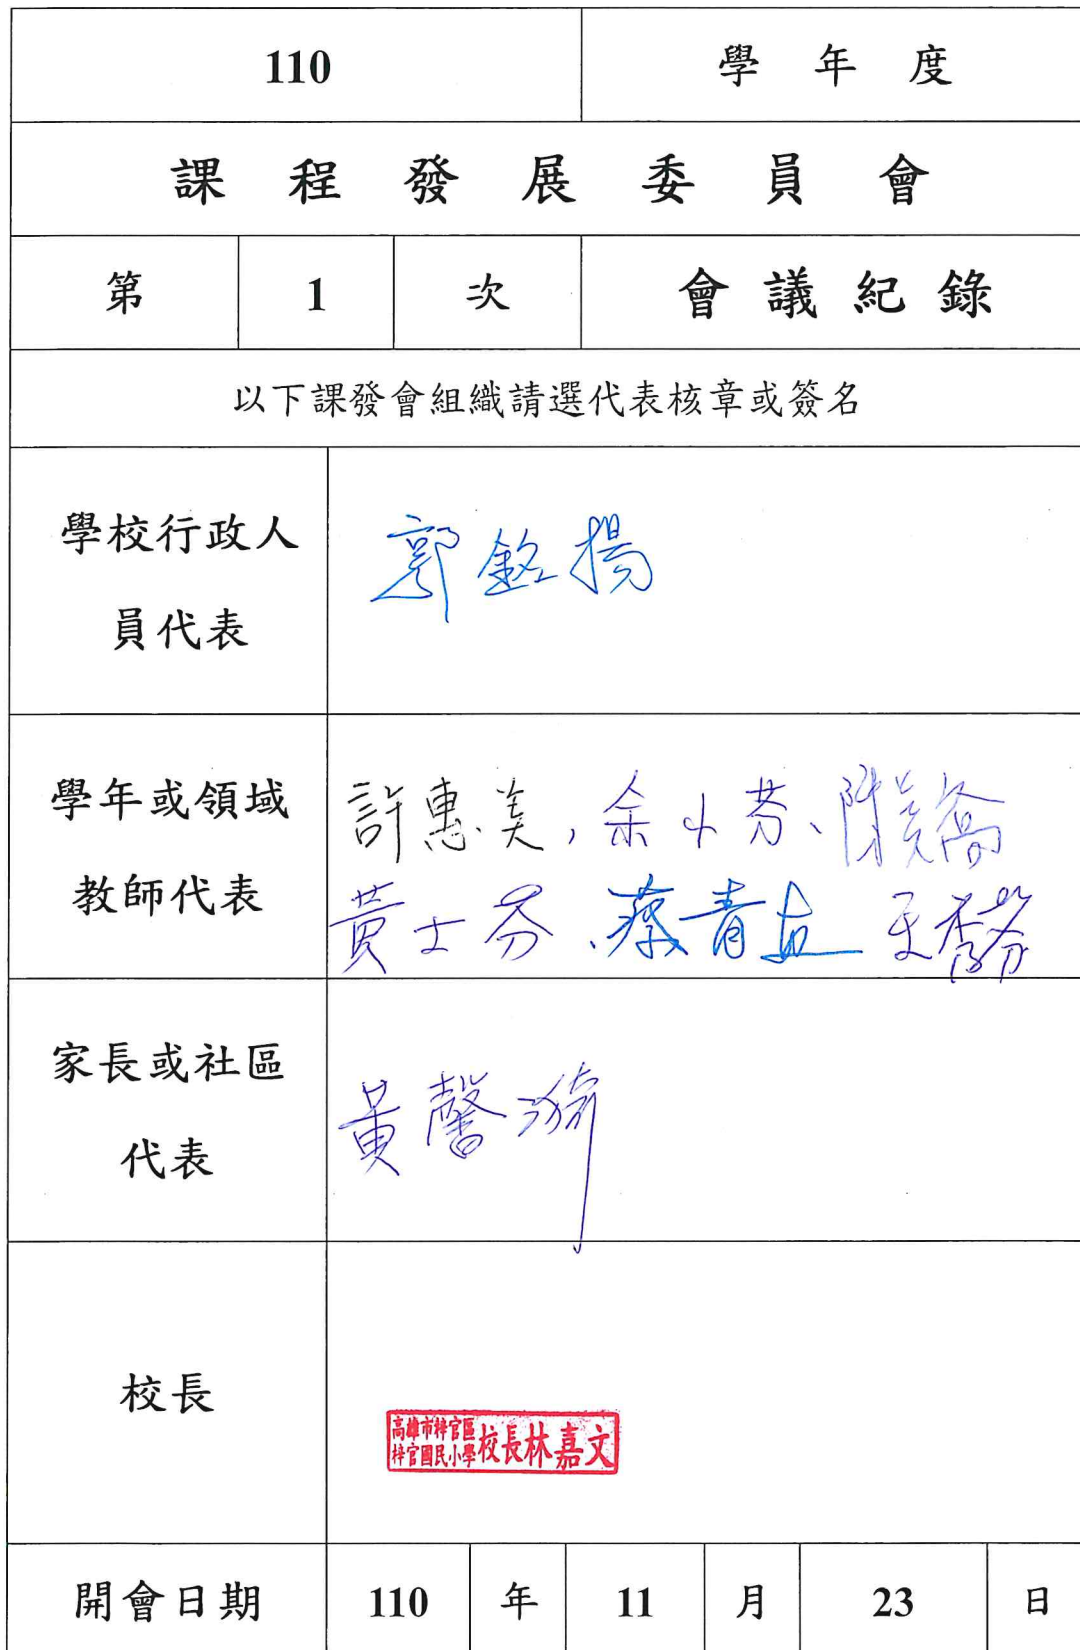 110 學年度
課程發展委員會
第 1 次 會議紀錄
以下課發會組織請選代表核章或簽名
學校行政人
員代表
郭銘揚
學年或領域
教師代表
許惠美, 余小芬、
黃士芬、蔡青
家長或社區
代表
黃馨
校長
高雄市梓官區
梓官國民小學 校長林嘉文
開會日期 110 年 11 月 23 日